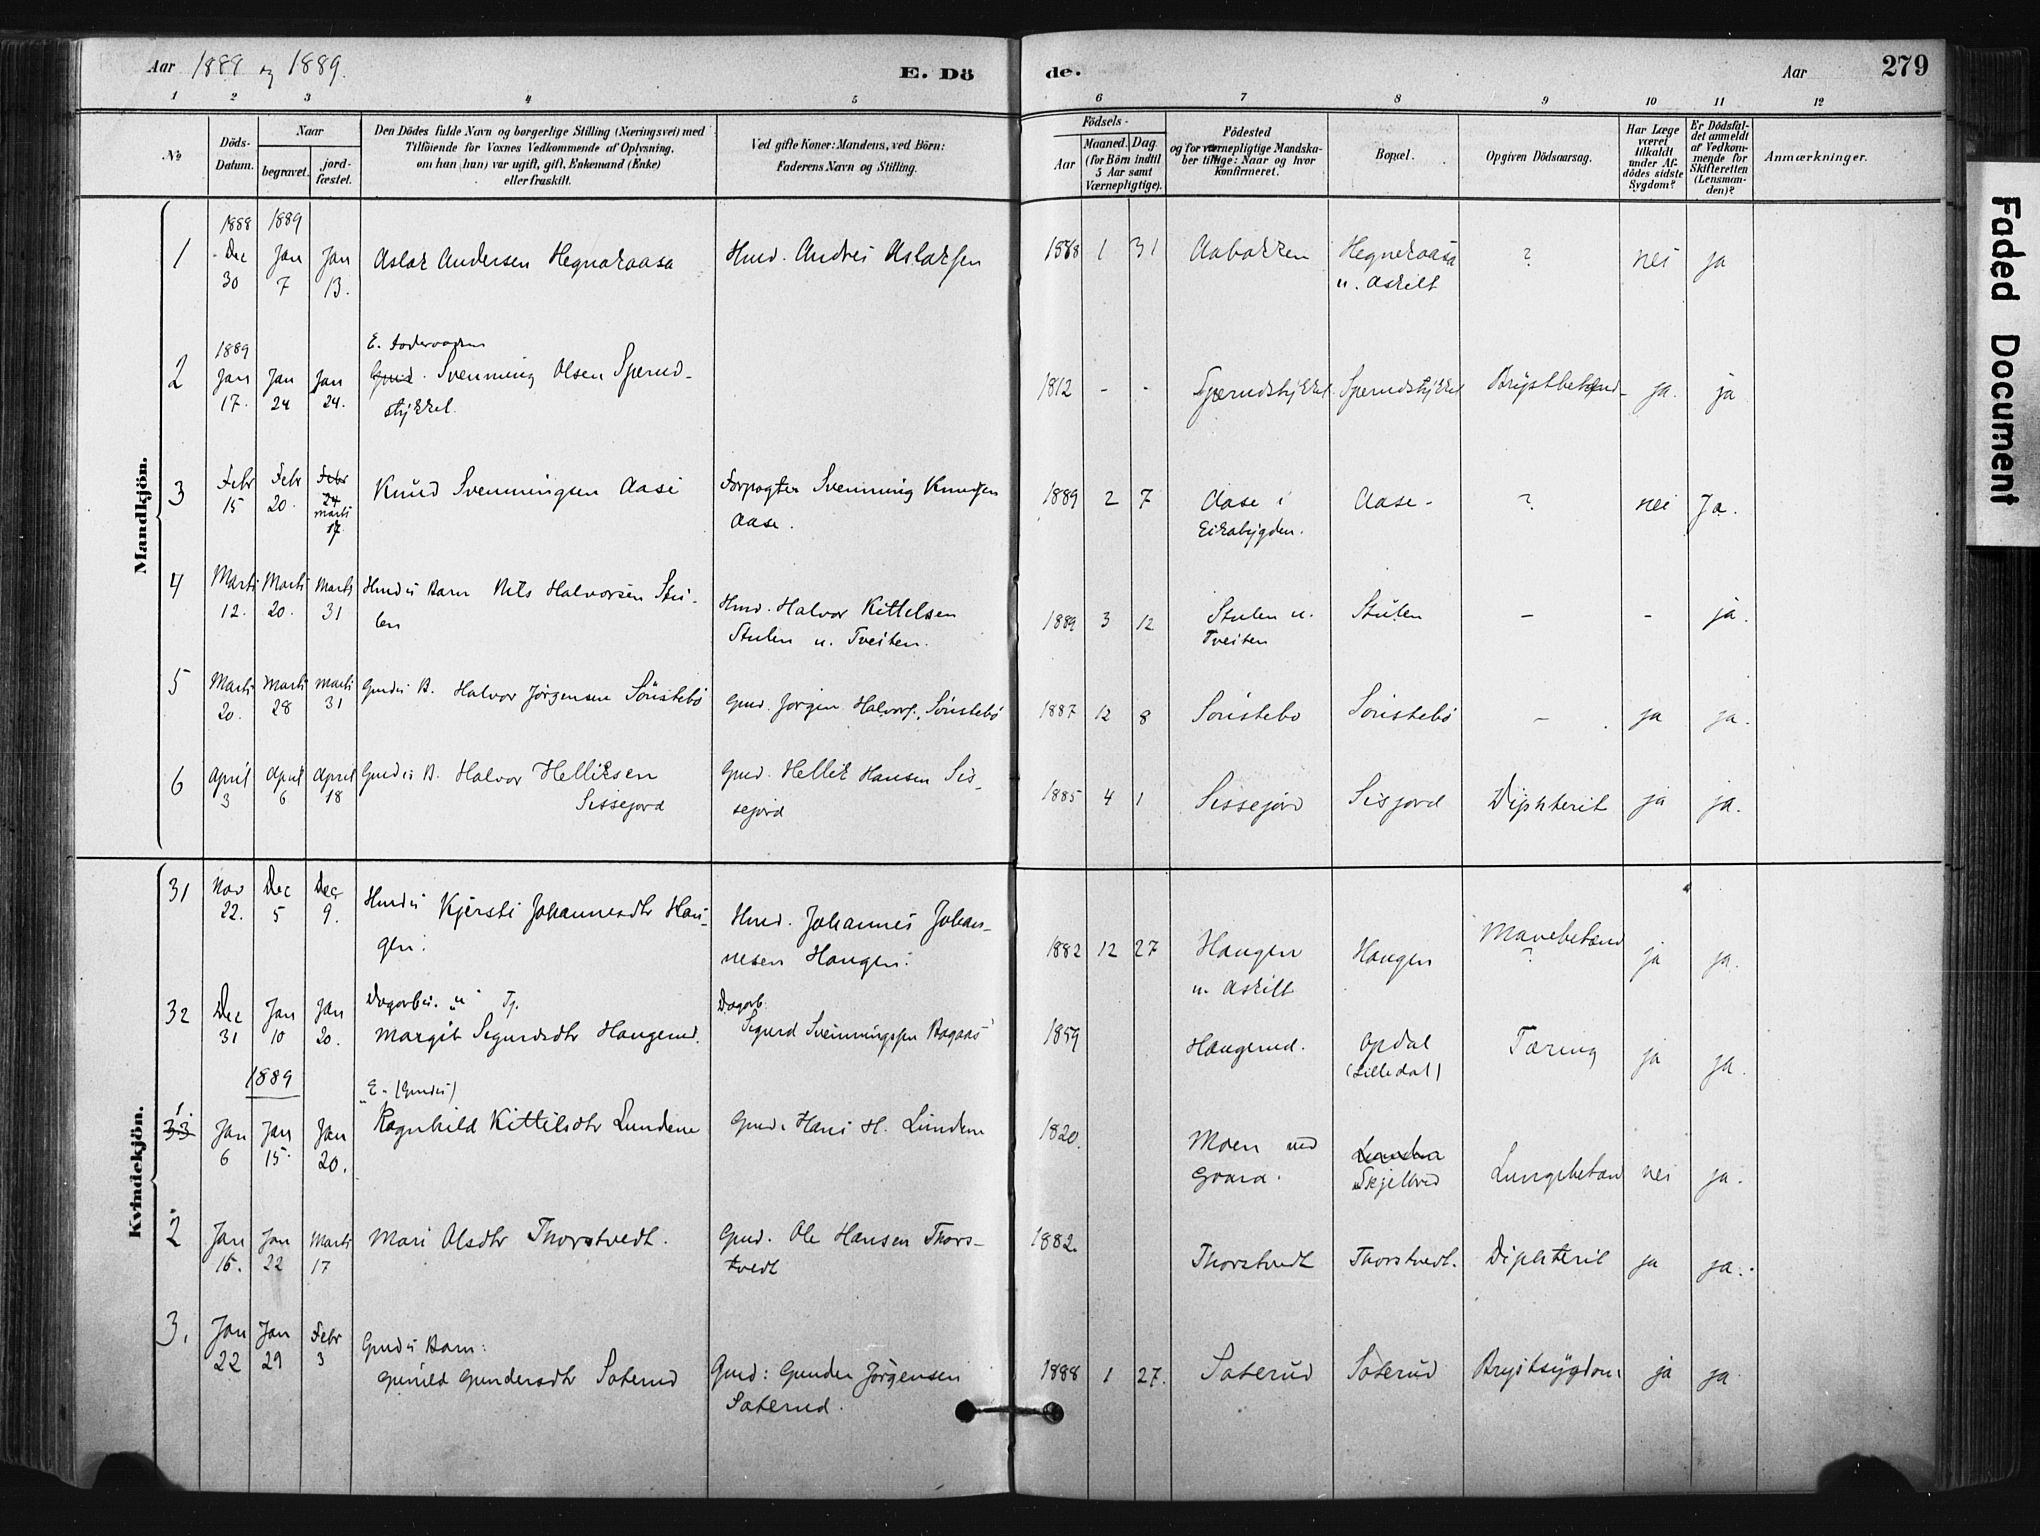 Aar 1889 og 1889.
E. Dö
de.
Aar
279
1 2 3 4 5 6 7 8 9 10 11 12
No
Döds-Datum.
Naar
begravet.
jordfæstet.
Den Dödes fulde Navn og borgerlige Stilling (Næringsvei) med
Tilföiende for Voxnes Vedkommende af Oplysning,
om han (hun) var ugift, gift, Enkemand (Enke)
eller fraskilt.
Ved gifte Koner: Mandens, ved Börn:
Faderens Navn og Stilling.
Födsels-
Aar
Maaned. Dag.
(for Börn indtil
5 Aar samt
Værnepligtige).
Födested
og for værnepligtige Mandska-
ber tillige: Naar og hvor
konfirmeret.
Bopæl.
Opgiven Dödsaarsag.
Har Læge
været
tilkaldt
under Af-
dödes sidste
Sygdom?
Er Dödsfal-
det anmeldt
af Vedkom-
mende for
Skifteretten
(Lensman-
den)?
Anmærkninger.
Mandkjön.
1 1888 Dec 30 1889 Jan 7 Jan 13. Aslak Andersen Hegnakaasa Hmd. Andres Aslaksen 1888 1 31 Aabakken Hegnekaasa u. Askilt ? nei ja
2 1889 Jan 17. Jan 24 Jan 24. E. Svenning Olsen Sperud-
stykket. 1812 - - Sperudstykket Sperudstykket Brystbetænd- ja. ja
3 Febr 15 Febr 20. Febr 24 Marts 17 Knud Svenningsen Aase Forpagter Svenning Knudsen
Aase. 1889 2 7 Aase i
Eikabygden. Aase - ? nei Ja.
4 Marts 12. Marts 20. Marts 31 Hmds Barn Nils Halvorsen Stu-
len Hmd. Halvor Kittelsen
Stulen u. Tveiten. 1889 3 12 Stulen u.
Tveiten Stulen - - ja.
5 Marts 20. Marts 28 Marts 31 Gmds B. Halvor Jörgensen Sönstebö Gmd. Jörgen Halvors. Sönstebö 1887 12 8 Sönstebö Sönstebö - ja ja.
6 April 3 April 6 April 18 Gmds B. Halvor Helliksen
Sissejord Gmd. Hellik Hansen Sis-
sejord 1885 4 1 Sissejord Sisjord Diphterit ja ja.
Kvindekjön.
31 Nov 22. Dec 5 Dec 9. Hmds Kjersti Johannesdtr Hau-
gen. Hmd. Johannes Johan-
nesen Haugen. 1882 12 27 Haugen
u. Askilt Haugen Mavebetænd
? ja ja.
32 Dec 31 Jan 10 Jan 20. Dagarb.
Margit Sigurdsdtr Haugerud. Dagarb.
Sigurd Svenningssen Bagaas 1859 Haugerud. Opdal
(Lilledal) Tæring ja ja.
1889
33 1 Jan 6 Jan 15. Jan 20. E. (Gmds)
Ragnhild Kittilsdtr Lundene Gmd. Hans H. Lundene 1820. Moen ned
Graara. Skjelbred Lungebetæn nei ja.
2 Jan 16. Jan 22 Marts 17 Mari Olsdtr Thorstvedt. Gmd. Ole Hansen Thors-
tvedt 1882. Thorstvedt Thorstvedt. Diphterit ja ja.
3. Jan 22 Jan 29 Febr 3 Gmds Barn:
Gunild Gundersdtr Saterud Gmd: Gunder Jörgensen
Saterud. 1888 1 27. Saterud Saterud Brystsygdom ja ja
Faded Document